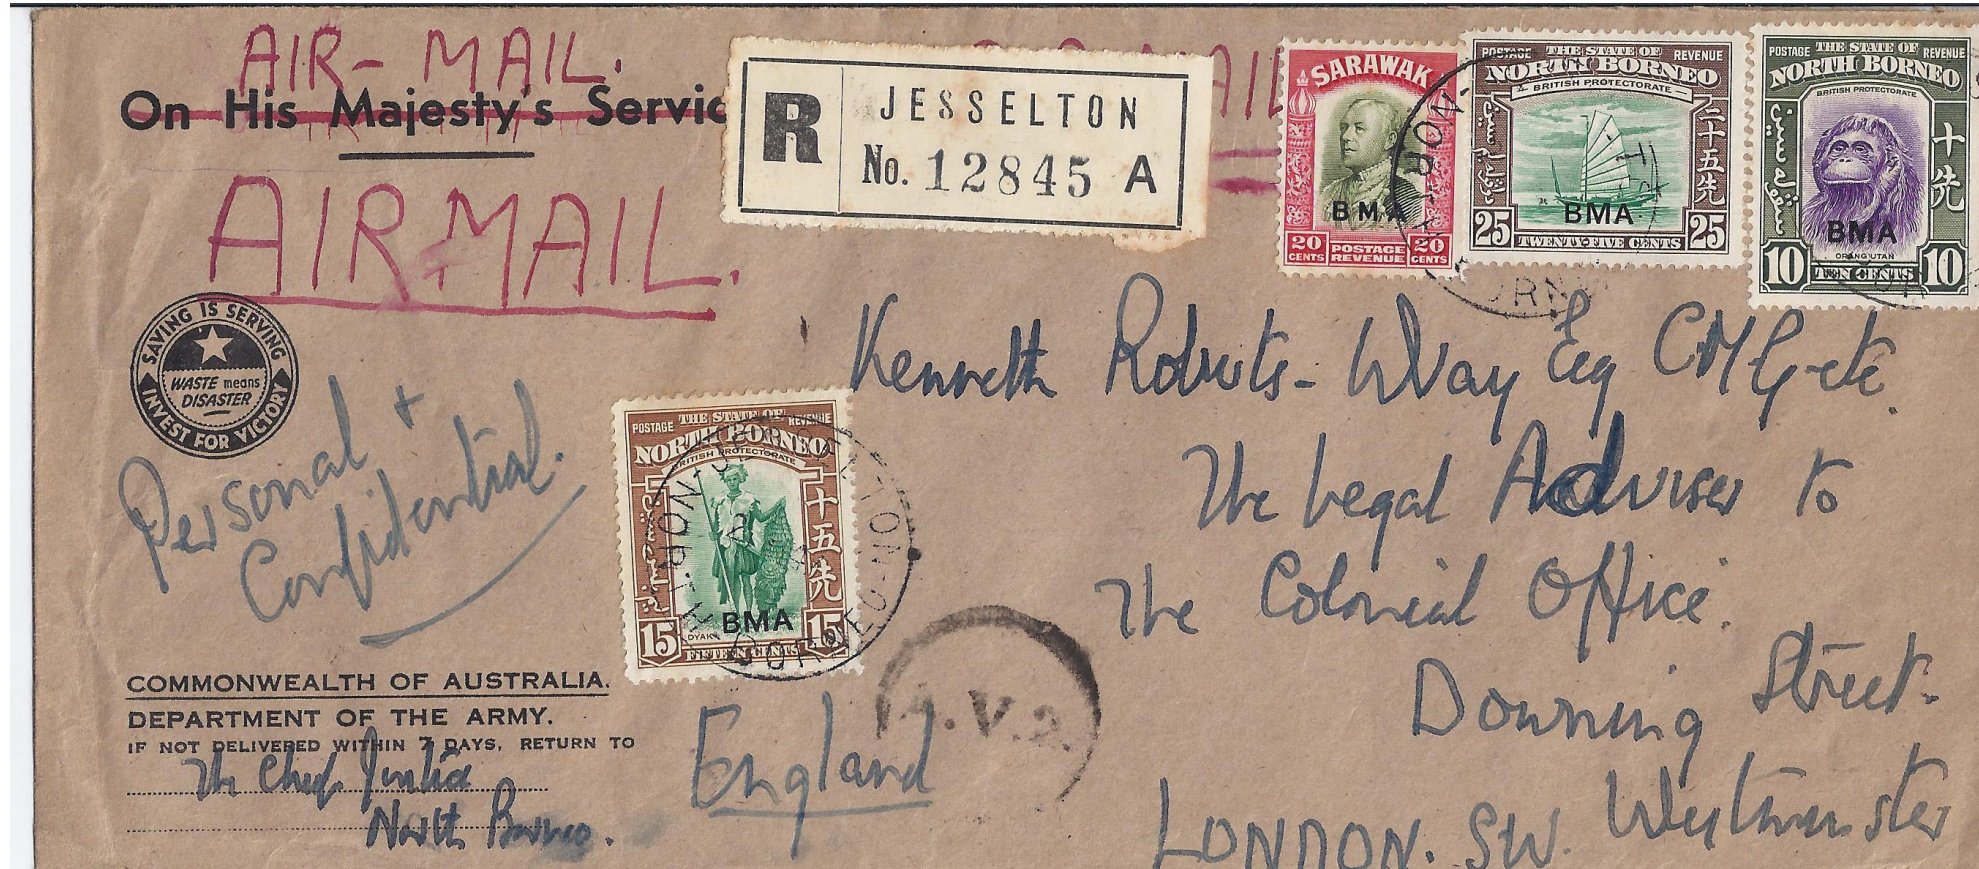 AIR-MAIL.
On His Majesty's Servic
AIR MAIL.
R
JESSELTON
No. 12845 A
SARAWAK
BMA
20 CENTS
POSTAGE REVENUE
20 CENTS
POSTAGE THE STATE OF REVENUE
NORTH BORNEO
BRITISH PROTECTORATE
二十五先
BMA
25 TWENTY-FIVE CENTS 25
POSTAGE THE STATE OF REVENUE
NORTH BORNEO
BRITISH PROTECTORATE
十先
BMA
ORANG UTAN
10 TEN CENTS 10
SAVING IS SERVING
WASTE means
DISASTER
INVEST FOR VICTORY
Personal +
Confidential.
POSTAGE THE STATE OF REVENUE
NORTH BORNEO
BRITISH PROTECTORATE
十五先
BMA
DYAK
15 FIFTEEN CENTS 15
Kenneth Roberts-Wray Esq CMG etc.
The Legal Adviser to
The Colonial Office.
Downing Street.
Westminster
LONDON. SW.
England
COMMONWEALTH OF AUSTRALIA.
DEPARTMENT OF THE ARMY.
IF NOT DELIVERED WITHIN 7 DAYS, RETURN TO
The Chief Justice
North Borneo.